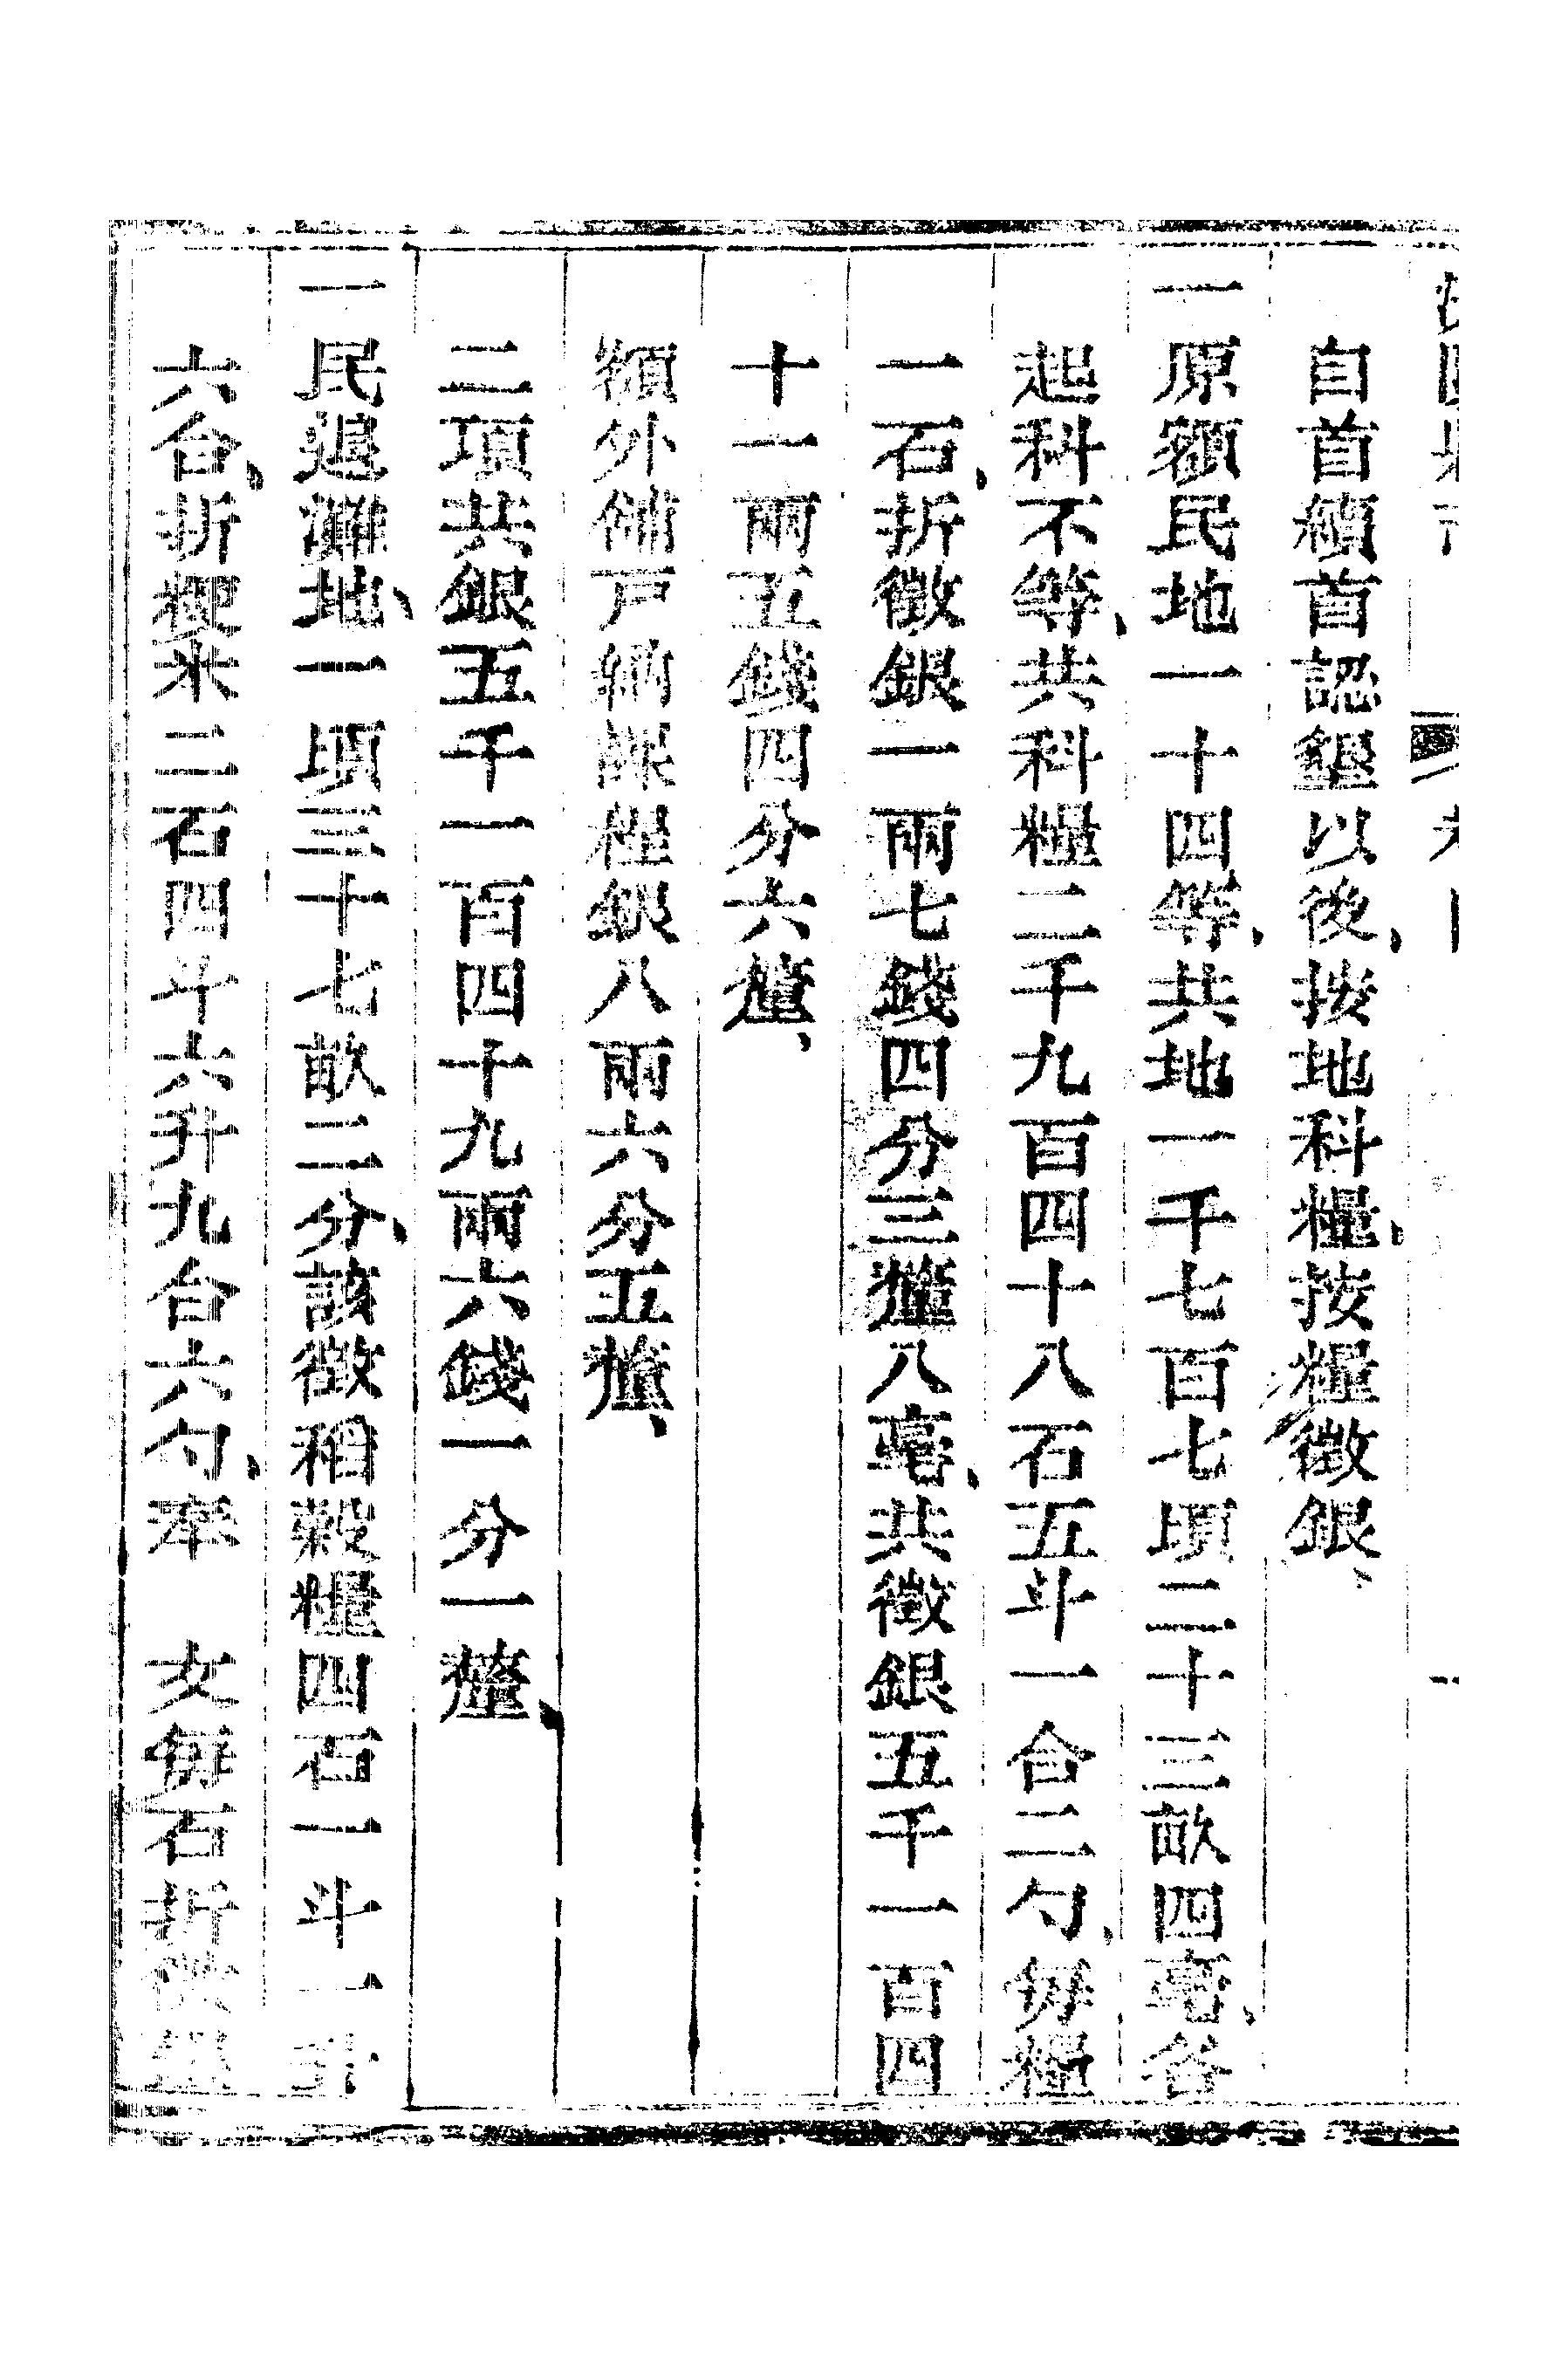 自首續首認墾以後、按地科糧、按糧徵銀、
一原額民地一十四等、共地一千七百七頃二十三畝四毫、各
起科不等、共科糧二千九百四十八石五斗一合二勺、每糧
一石、折徵銀一兩七錢四分三釐八毫、共徵銀五千一百四
十一兩五錢四分六釐、
額外鋪戸納課糧銀八兩六分五釐、
二項共銀五千一百四十九兩六錢一分一釐、
一民退灘地、一頃三十七畝二分、該徵稻穀糧四石一斗一升
六合、折粳米二石四斗六升九合六勺、奉 文每石折徵銀